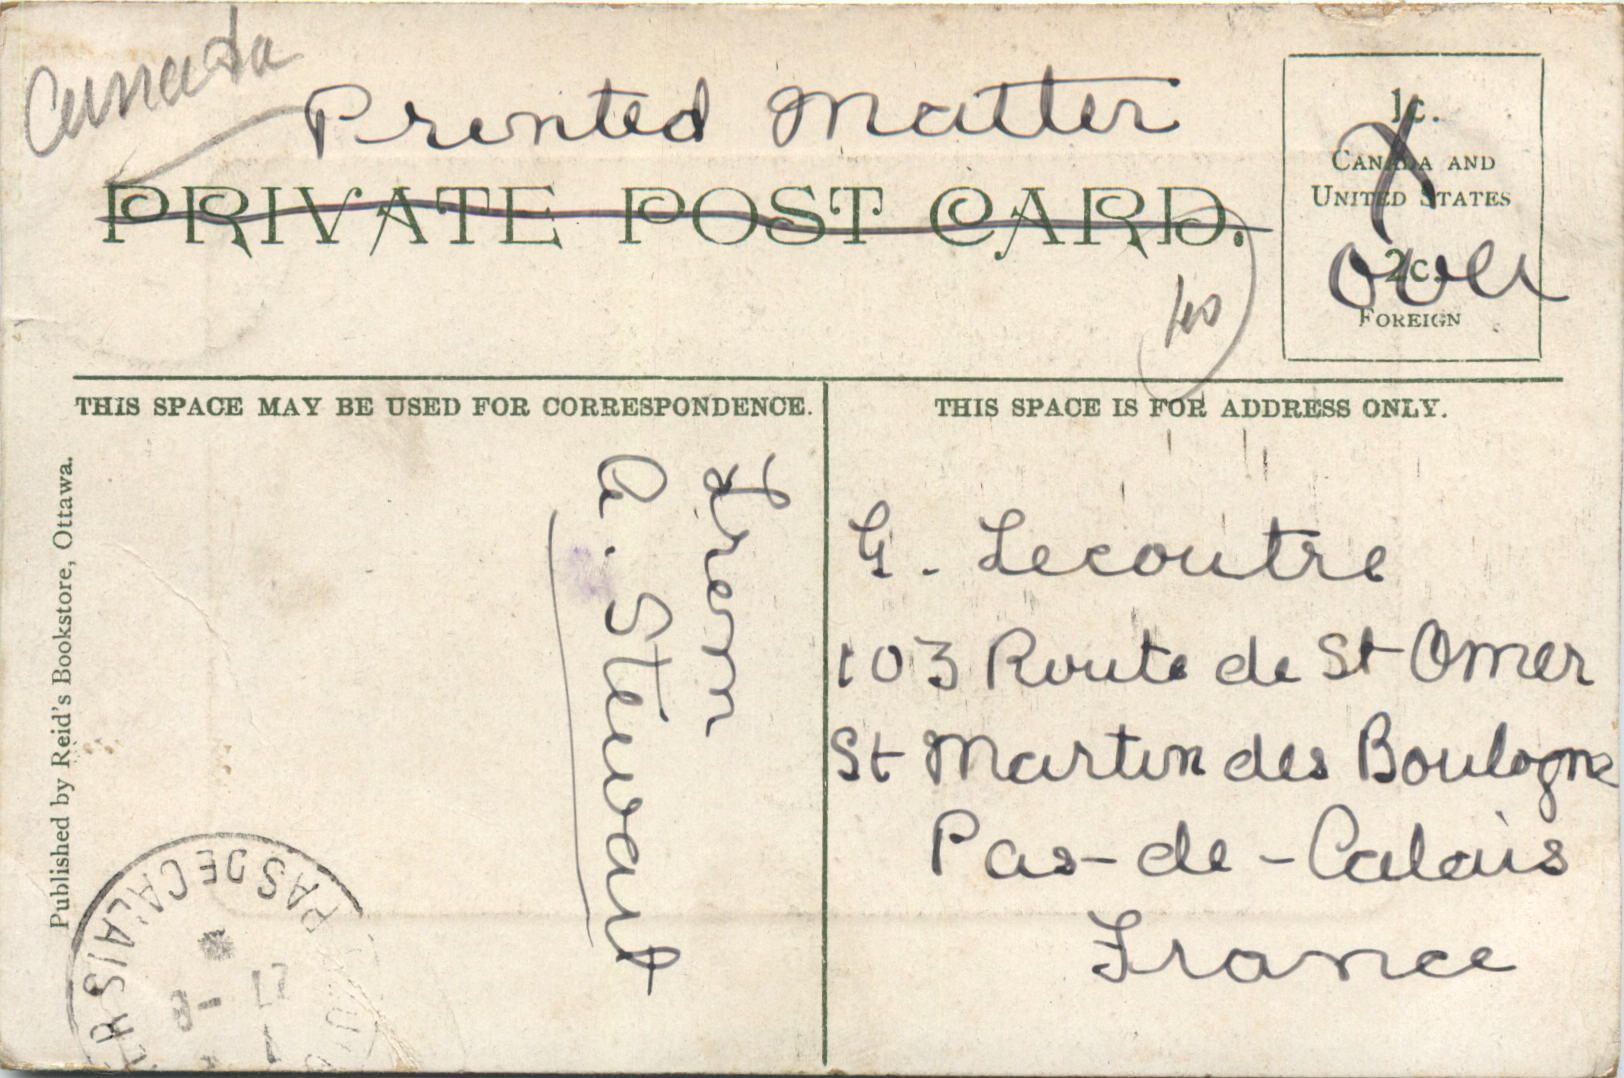 Canada
Printed Matter
PRIVATE POST CARD.
1c.
CANADA AND
UNITED STATES
2c.
FOREIGN
over
THIS SPACE MAY BE USED FOR CORRESPONDENCE.
THIS SPACE IS FOR ADDRESS ONLY.
From
A. Stewart
G. Lecoutre
103 Route de St Omer
St Martin des Boulogne
Pas-de-Calais
France
Published by Reid's Bookstore, Ottawa.
PAS DE CALAIS